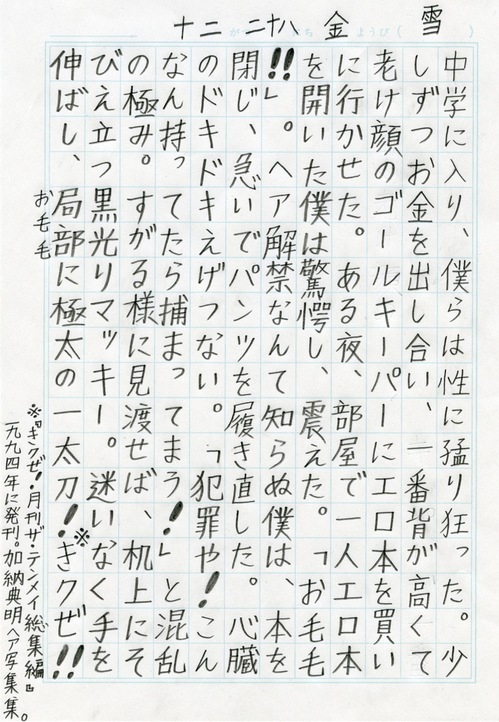 十二がつ二十八にち金ようび(雪)
中学に入り、僕らは性に猛り狂った。少
しずつお金を出し合い、一番背が高くて
老け顔のゴールキーパーにエロ本を買い
に行かせた。ある夜、部屋で一人エロ本
を開いた僕は驚愕し、震えた。「お毛毛
!!」。ヘア解禁なんて知らぬ僕は、本を
閉じ、急いでパンツを履き直した。心臓
のドキドキえげつない。「犯罪や!こん
なん持ってたら捕まってまう!」と混乱
の極み。すがる様に見渡せば、机上にそ
びえ立つ黒光りマッキー。迷いなく手を
伸ばし、局部に極太の一太刀!きクぜ!!
お毛毛
※
※『きクぜ!月刊ザ・テンメイ総集編』
一九九四年に発刊。加納典明ヘア写真集。